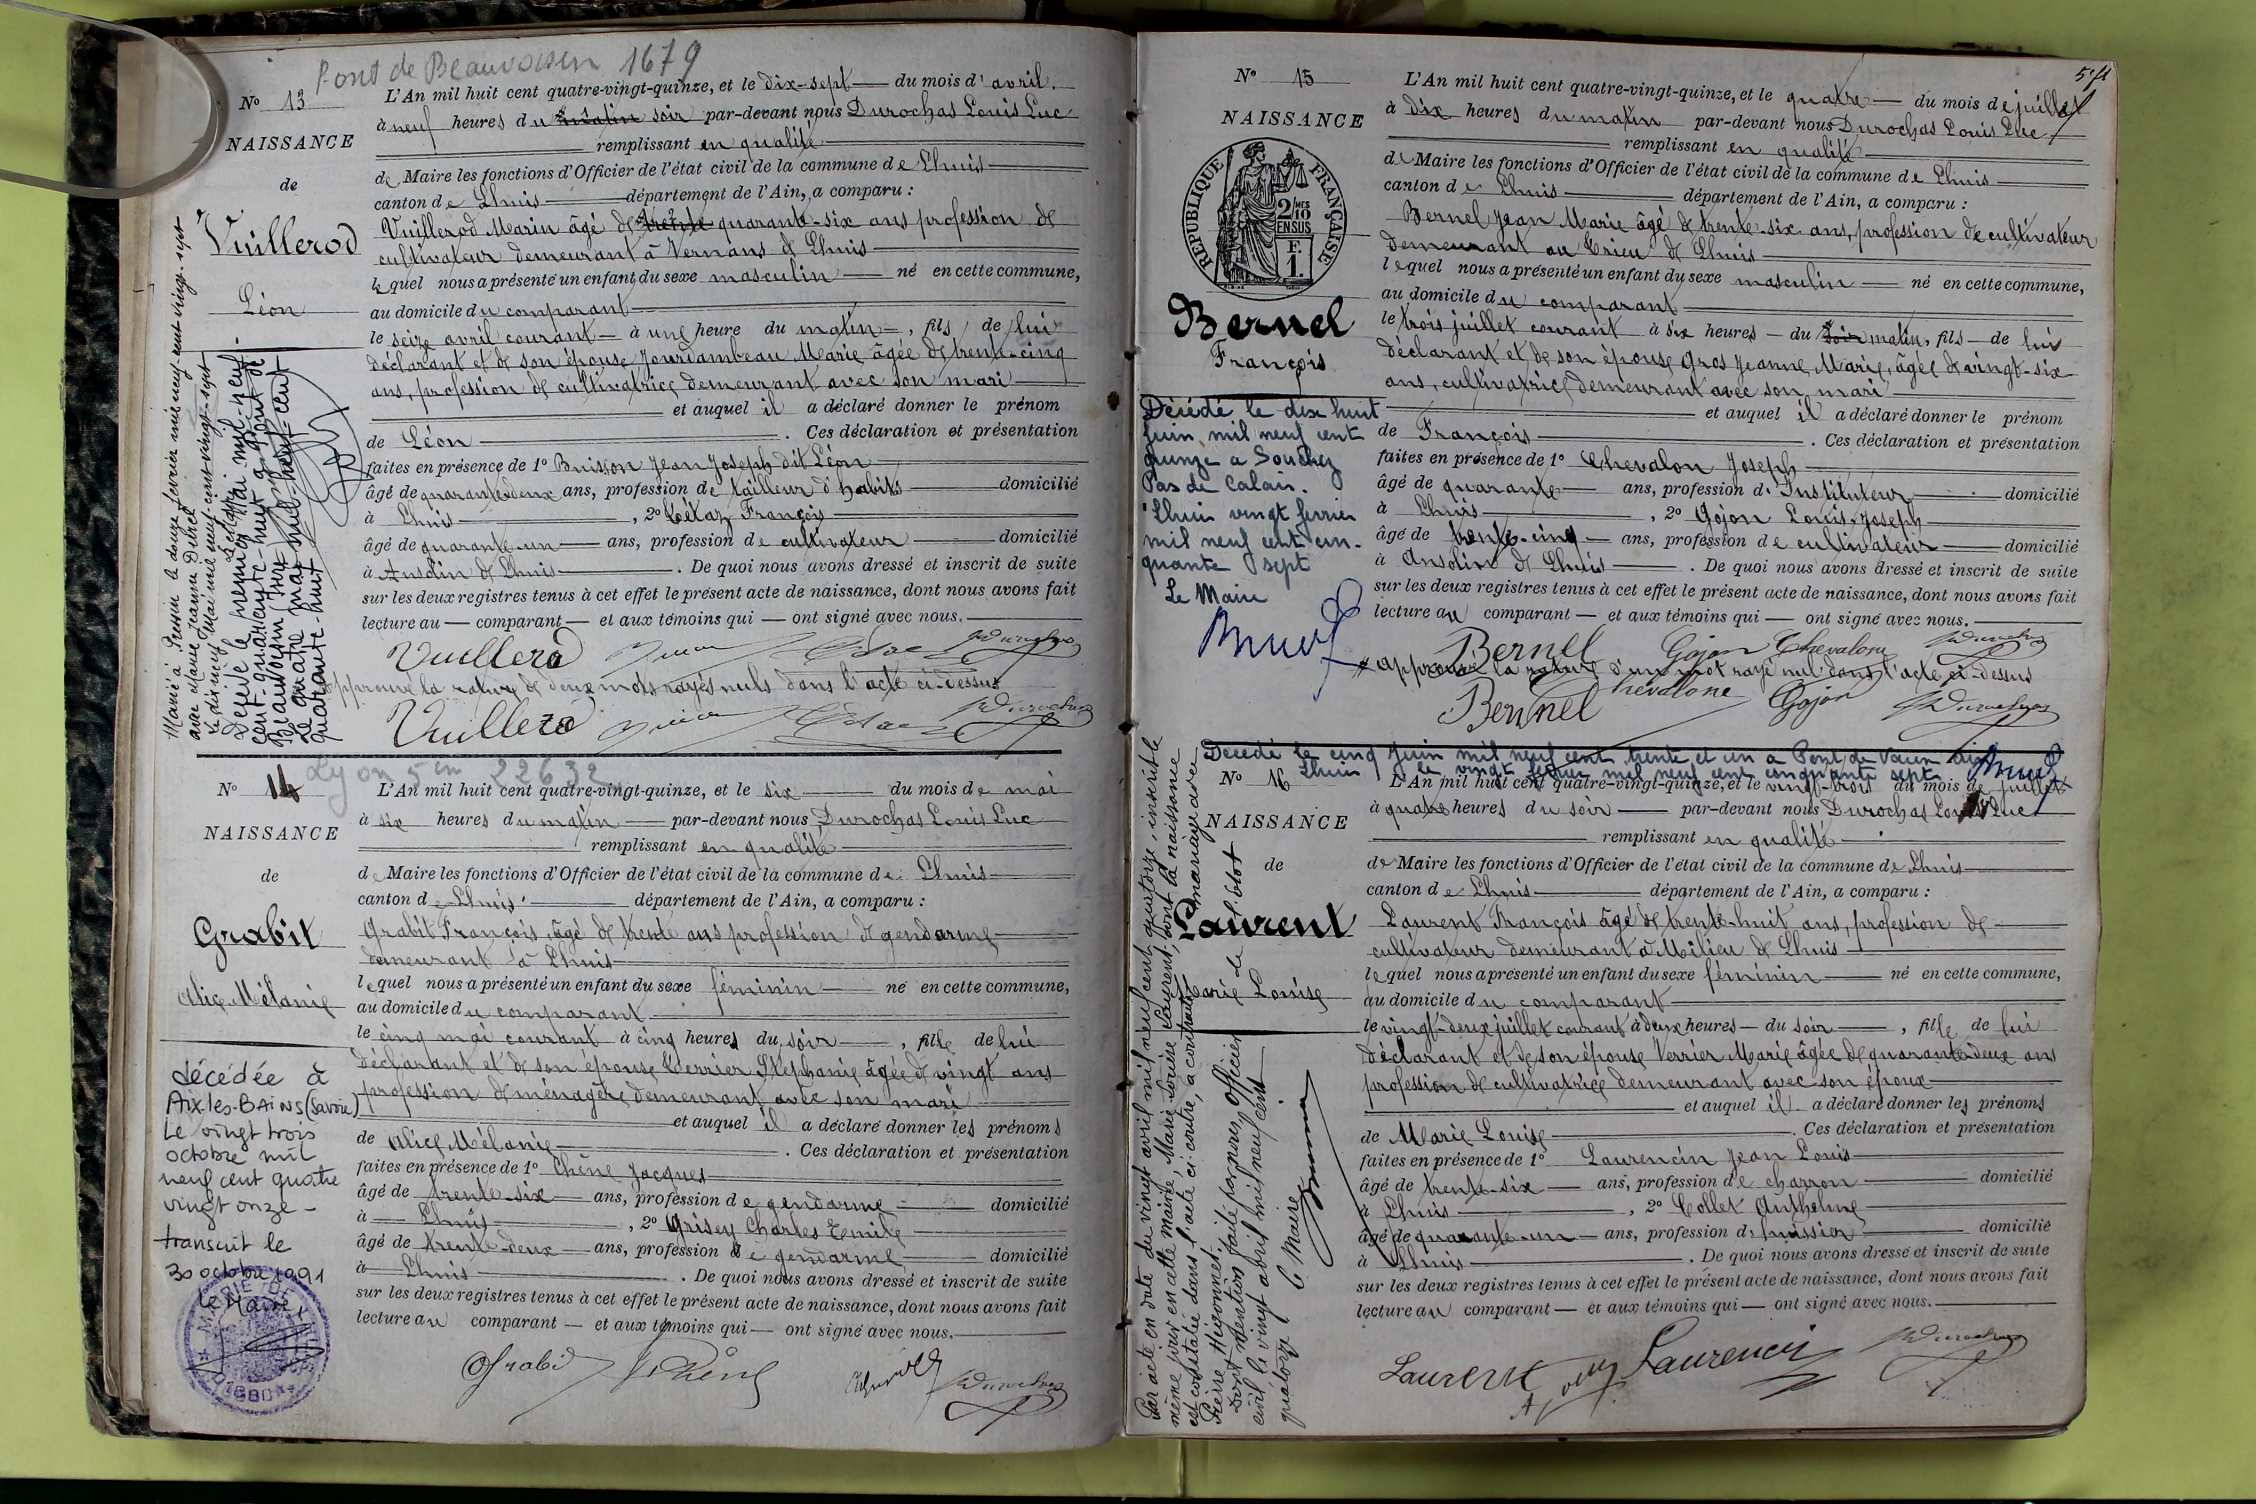 Pont de Beauvoisin 1679
N° 13
NAISSANCE
de
Vuillerod
Léon
L'An mil huit cent quatre-vingt-quinze, et le dix-sept du mois d'avril
à neuf heures du matin soir par-devant nous Durochas Louis Luc
remplissant en qualité
de Maire les fonctions d'Officier de l'état civil de la commune de Lhuis
canton de Lhuis département de l'Ain, a comparu :
Vuillerod Marin âgé de trente quarante-six ans profession de
cultivateur demeurant à Vernans de Lhuis
lequel nous a présenté un enfant du sexe masculin né en cette commune,
au domicile du comparant
le seize avril courant à une heure du matin, fils de lui
déclarant et de son épouse Jourdambeau Marie âgée de trente-cinq
ans, profession de cultivatrice demeurant avec son mari
et auquel il a déclaré donner le prénom
de Léon. Ces déclaration et présentation
faites en présence de 1° Buisson Jean Joseph dit Léon
âgé de quarante-deux ans, profession de tailleur d'habits domicilié
à Lhuis, 2° Cétaz François
âgé de quarante-un ans, profession de cultivateur domicilié
à Ansolin de Lhuis. De quoi nous avons dressé et inscrit de suite
sur les deux registres tenus à cet effet le présent acte de naissance, dont nous avons fait
lecture au comparant et aux témoins qui ont signé avec nous.
Vuillerod
approuvé la rature de deux mots rayés nuls dans l'acte ci-dessus
Vuillerod
Marié à Pressin le douze février mil neuf cent vingt-sept
avec Marie Jeanne
Le dix neuf Mai mil neuf cent vingt-sept
Décédé le premier Mai mil-neuf-
cent-quarante-huit à Pont de
Beauvoisin (Isère)
le quatre mai mil-neuf-cent
quarante-huit
Lyon 5em 22632
N° 14
NAISSANCE
de
Grabit
Alice Mélanie
L'An mil huit cent quatre-vingt-quinze, et le six du mois de mai
à six heures du matin par-devant nous Durochas Louis Luc
remplissant en qualité
de Maire les fonctions d'Officier de l'état civil de la commune de Lhuis
canton de Lhuis département de l'Ain, a comparu :
Grabit François âgé de trente ans profession de gendarme
demeurant à Lhuis
lequel nous a présenté un enfant du sexe féminin né en cette commune,
au domicile du comparant
le cinq mai courant à cinq heures du soir, fille de lui
déclarant et de son épouse Verrier Stéphanie âgée de vingt ans
profession de ménagère demeurant avec son mari
et auquel il a déclaré donner les prénoms
de Alice Mélanie. Ces déclaration et présentation
faites en présence de 1° Chêne Jacques
âgé de trente-six ans, profession de gendarme domicilié
à Lhuis, 2° Grisey Charles Emile
âgé de trente-deux ans, profession de gendarme domicilié
à Lhuis. De quoi nous avons dressé et inscrit de suite
sur les deux registres tenus à cet effet le présent acte de naissance, dont nous avons fait
lecture au comparant et aux témoins qui ont signé avec nous.
Grabit Chêne
décédée à
AIX-les-BAINS (Savoie)
Le vingt trois
octobre mil
neuf cent quatre
vingt onze -
transcrit le
30 octobre 1991
Le Maire
MAIRIE DE LHUIS
N° 15
NAISSANCE
RÉPUBLIQUE FRANÇAISE
2/10 MES
EN SUS
F.
1.
Bernel
François
L'An mil huit cent quatre-vingt-quinze, et le quatre du mois de juillet
à dix heures du matin par-devant nous Durochas Louis Luc
remplissant en qualité
de Maire les fonctions d'Officier de l'état civil de la commune de Lhuis
canton de Lhuis département de l'Ain, a comparu :
Bernel Jean Marie âgé de trente-six ans, profession de cultivateur
demeurant au Crieu de Lhuis
lequel nous a présenté un enfant du sexe masculin né en cette commune,
au domicile du comparant
le trois juillet courant à six heures du soir matin, fils de lui
déclarant et de son épouse Gros Jeanne Marie, âgée de vingt-six
ans, cultivatrice demeurant avec son mari
et auquel il a déclaré donner le prénom
de François. Ces déclaration et présentation
faites en présence de 1° Chevalon Joseph
âgé de quarante ans, profession d'Instituteur domicilié
à Lhuis, 2° Gojon Louis Joseph
âgé de trente-cinq ans, profession de cultivateur domicilié
à Ansolin de Lhuis. De quoi nous avons dressé et inscrit de suite
sur les deux registres tenus à cet effet le présent acte de naissance, dont nous avons fait
lecture au comparant et aux témoins qui ont signé avec nous.
Bernel Gojon Chevalon
approuvé la rature d'un mot rayé nul dans l'acte ci-dessus
Bernel Chevalon Gojon
Décédé le dix huit
juin mil neuf cent
quinze à Souchez
Pas de Calais.
Lhuis vingt février
mil neuf cent cin-
quante sept
Le Maire
Décédé le cinq juin mil neuf cent trente et un à Pont de Vaux Ain
Lhuis le vingt février mil neuf cent cinquante sept
N° 16
NAISSANCE
de
Laurent
Marie Louise
L'An mil huit cent quatre-vingt-quinze, et le vingt-trois du mois de juillet
à quatre heures du soir par-devant nous Durochas Louis Luc
remplissant en qualité
de Maire les fonctions d'Officier de l'état civil de la commune de Lhuis
canton de Lhuis département de l'Ain, a comparu :
Laurent François âgé de trente-huit ans, profession de
cultivateur demeurant à Milieu de Lhuis
lequel nous a présenté un enfant du sexe féminin né en cette commune,
au domicile du comparant
le vingt-deux juillet courant à deux heures du soir, fille de lui
déclarant et de son épouse Verrier Marie âgée de quarante-deux ans
profession de cultivatrice demeurant avec son époux
et auquel il a déclaré donner les prénoms
de Marie Louise. Ces déclaration et présentation
faites en présence de 1° Laurencin Jean Louis
âgé de trente-six ans, profession de charron domicilié
à Lhuis, 2° Collet Anthelme
âgé de quarante-un ans, profession d'huissier domicilié
à Lhuis. De quoi nous avons dressé et inscrit de suite
sur les deux registres tenus à cet effet le présent acte de naissance, dont nous avons fait
lecture au comparant et aux témoins qui ont signé avec nous.
Laurent Laurencin
Par acte en date du vingt avril mil neuf cent quatorze, inscrit le
même jour en cette mairie, Marie Louise Laurent, dont la naissance
est constatée dans l'acte ci-contre, a contracté mariage avec
Pierre Higonnet.
Dont mention faite par nous, Officier de l'état
civil le vingt avril mil neuf cent
quatorze
Le Maire